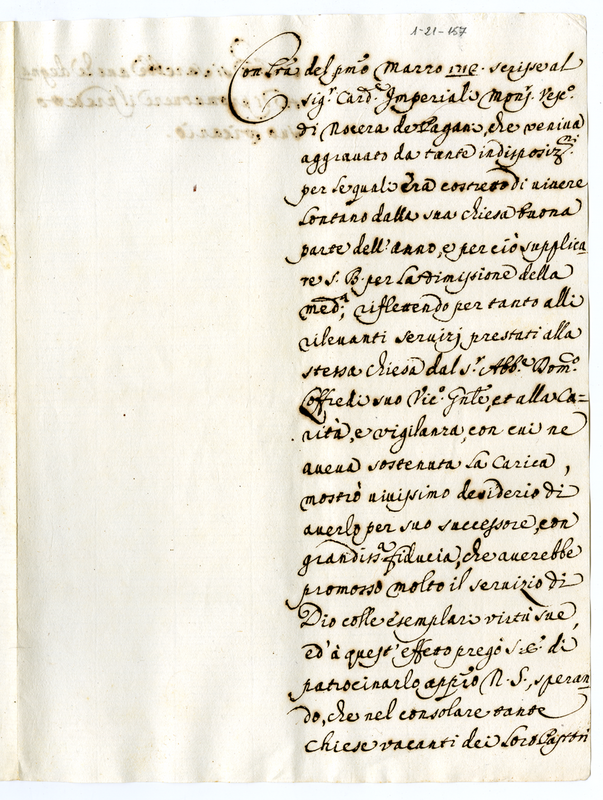 1-21-157
Con Lrã del pmõ Marzo 1716. scrisse al
sig.r Card. Imperiali Mons. Vesc.o
di Nocera de Pagani, che veniva
aggravato da tante indisposiz.ni
per le quali era costretto di vivere
lontano dalla sua chiesa buona
parte dell'anno, e per ciò supplica
re S. B. per la dimissione della
med.a, riflettendo per tanto alli
rilevanti servizj prestati alla
stessa chiesa dal s.r Abb.e Dom.co
Loffredi suo Vic.o Gnle, et alla Ca=
rità, e vigilanza, con cui ne
aveva sostenuta la Carica,
mostrò vivissimo desiderio di
averlo per suo successore, con
grandiss.a fiducia, che averebbe
promosso molto il servizio di
Dio colle esemplari virtù sue,
ed à quest'effetto pregò S. E. di
patrocinarlo appr̃o N. S., speran
do, che nel consolare tante
chiese vacanti dei loro Pastori